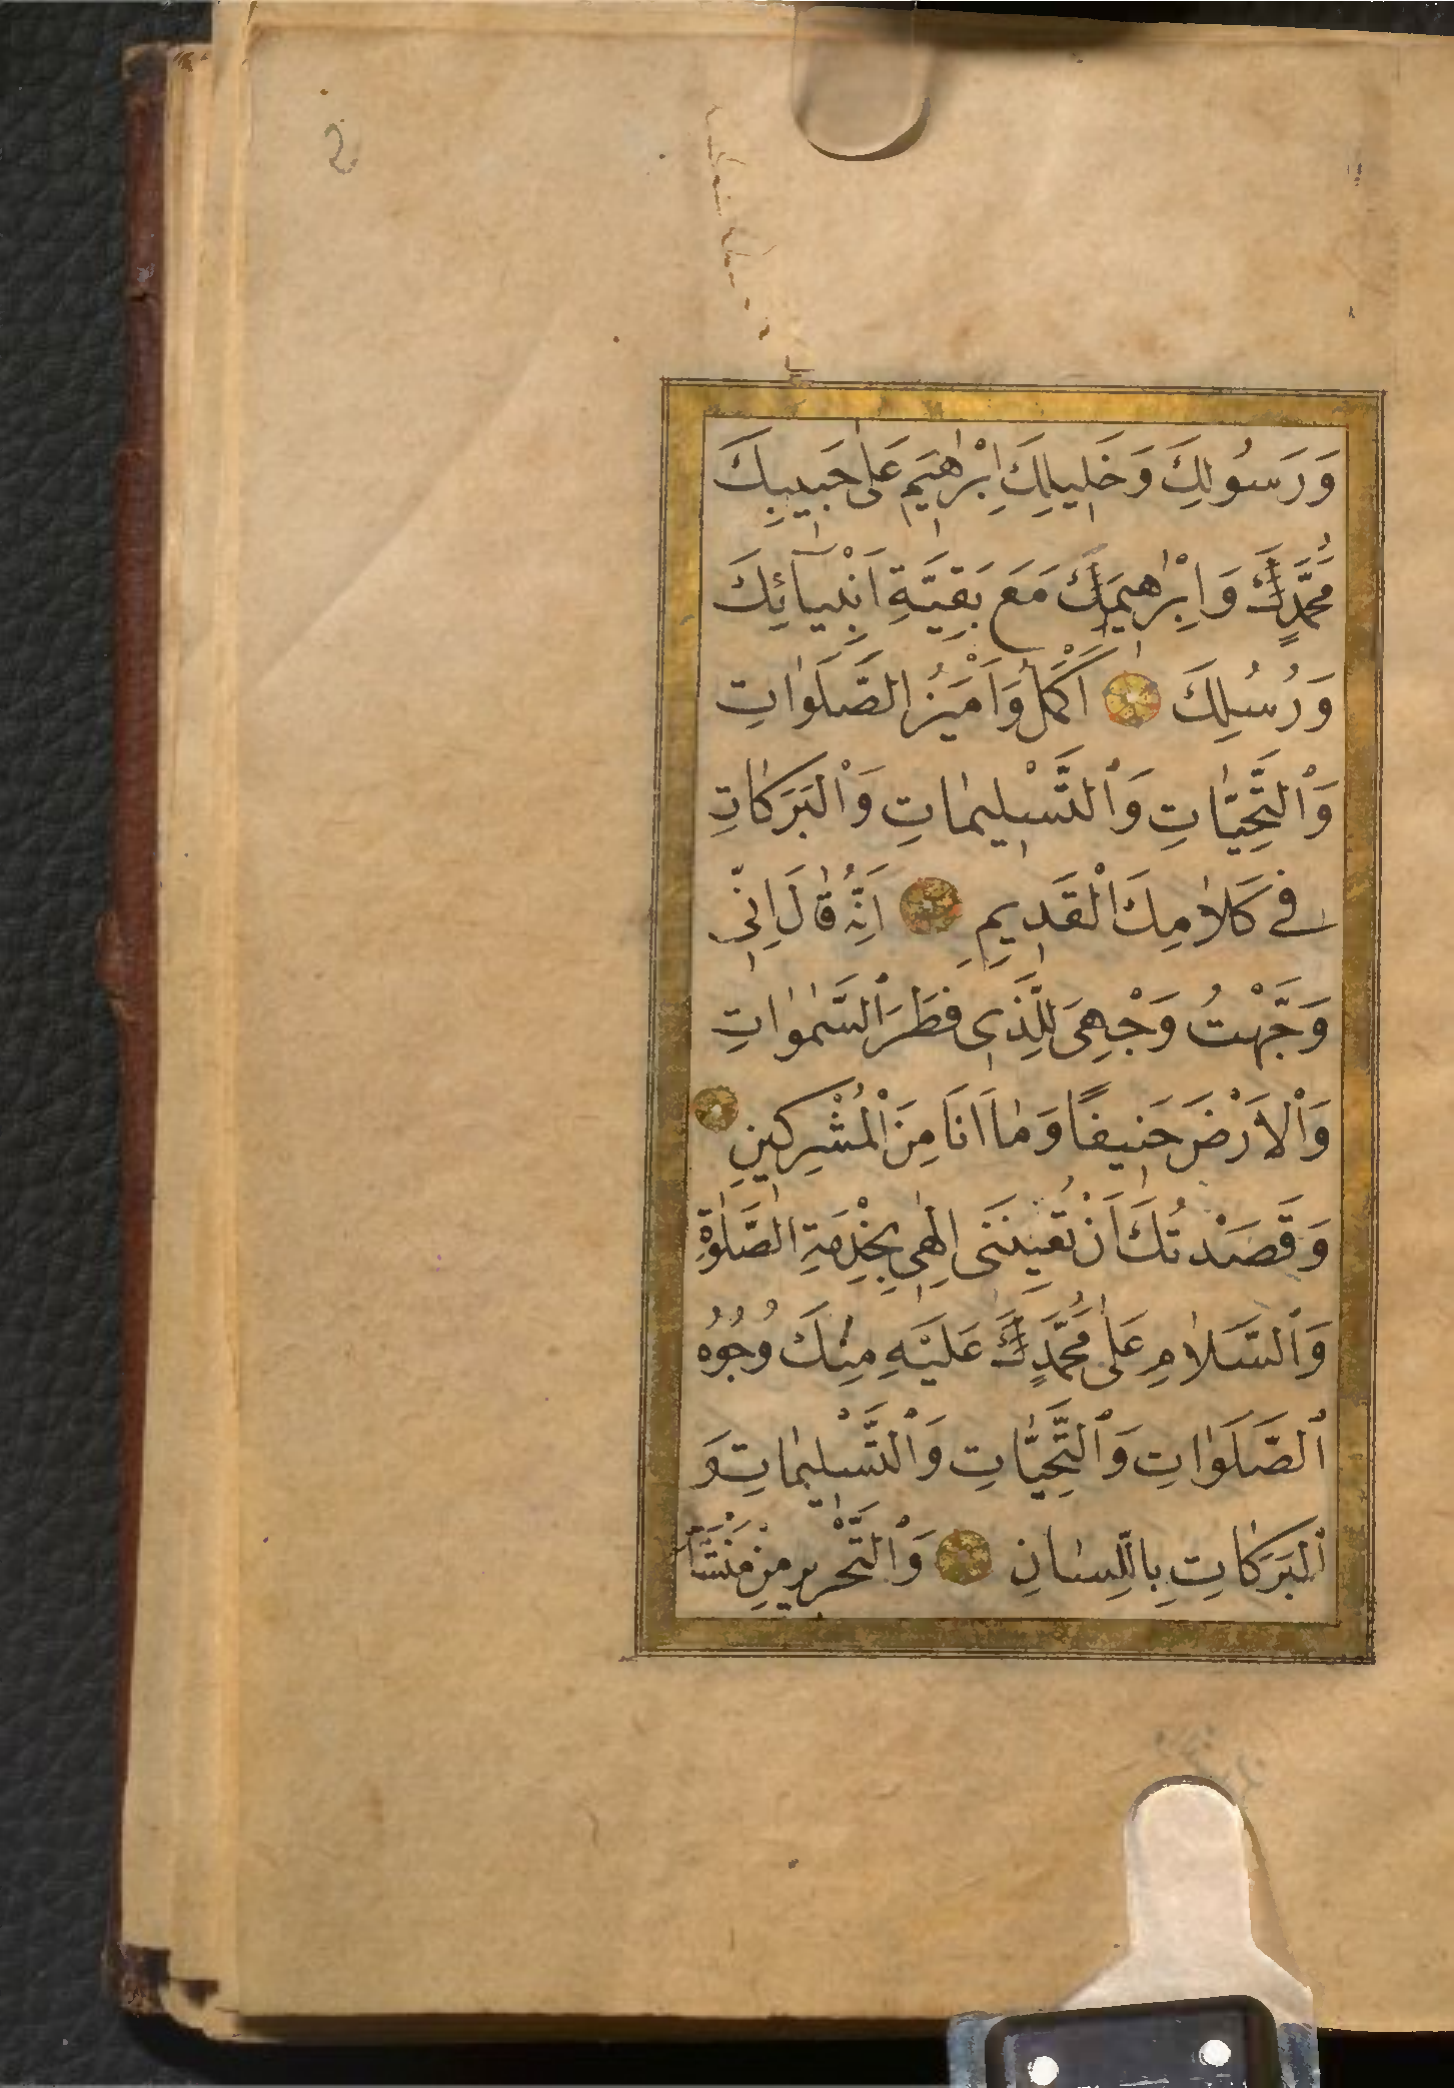 وَرَسُولِكَ وَخَلِيلِكَ اِبْرٰهِيمَ عَلٰى حَبِيبِكَ
مُحَمَّدٍكَ وَاِبْرٰهِيمَكَ مَعَ بَقِيَّةِ اَنْبِيَآئِكَ
وَرُسُلِكَ اَكْمَلُ وَاَمْيَزُ الصَّلَوٰاتِ
وَٱلتَّحِيّٰاتِ وَٱلتَّسْلِيمٰاتِ وَٱلْبَرَكٰاتِ
فِي كَلٰامِكَ الْقَدِيمِ اَنَّهُ قٰالَ اِنِّى
وَجَّهْتُ وَجْهِىَ لِلَّذِى فَطَرَ ٱلسَّمٰوٰاتِ
وَٱلْاَرْضَ حَنِيفًا وَمٰا اَنَا مِنَ ٱلْمُشْرِكِينَ
وَقَصَدْتُكَ اَنْ تُعِينَنِى اِلٰهِى بِخِدْمَةِ الصَّلٰوةِ
وَٱلسَّلٰامِ عَلٰى مُحَمَّدٍكَ عَلَيْهِ مِنْكَ وُجُوهُ
ٱلصَّلَوٰاتِ وَٱلتَّحِيّٰاتِ وَٱلتَّسْلِيمٰاتِ وَ
ٱلْبَرَكٰاتِ بِاللِّسٰانِ وَٱلتَّحْرِيرِ مِنْ مَنْشَأِ